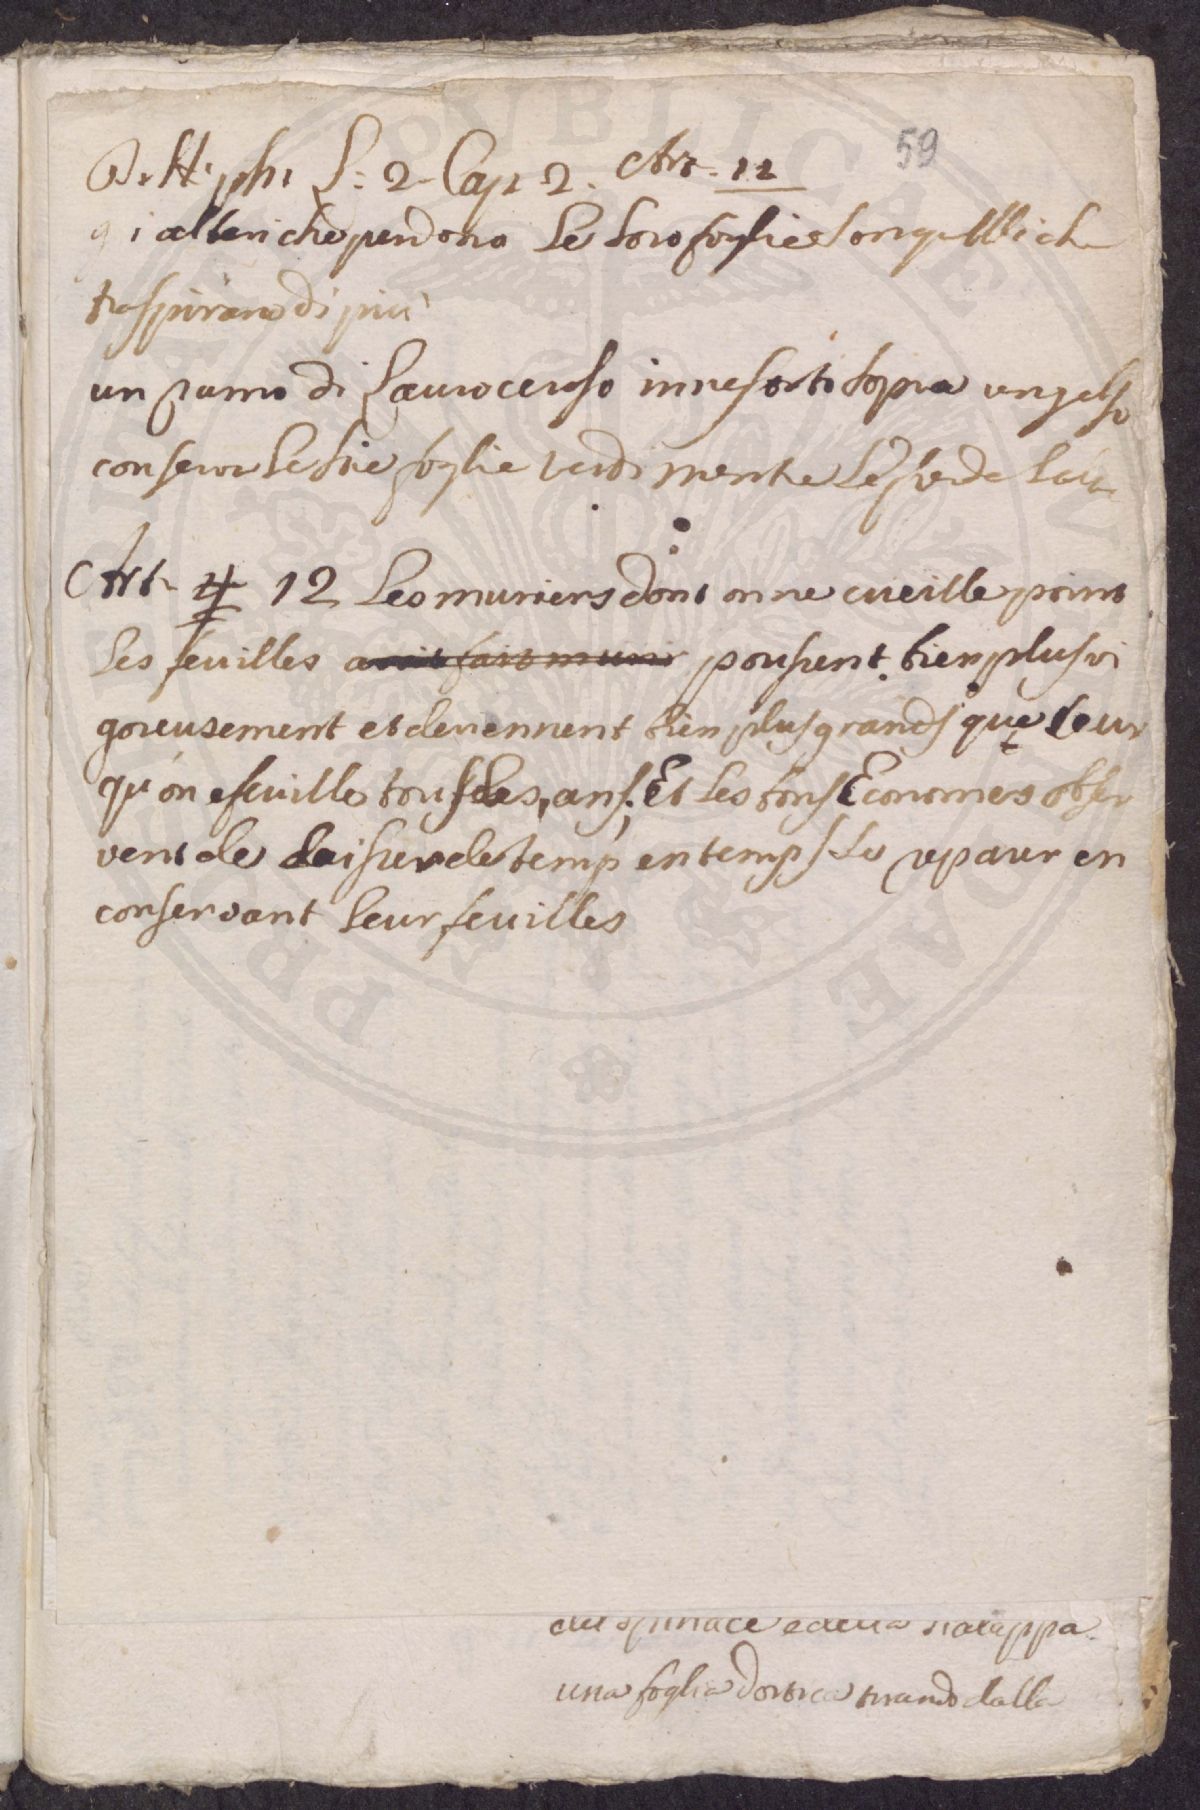 59
L: 2 Cap 2. Art. 12
gi alberi che perdono le loro foglie son quelli che
traspirano di più
un ramo di Lauroceraso innesorto sopra un gelso
conserva le sue foglie verdi mentre le perde
Art. 4 12 Les muriers dont on ne cueille point
les feuilles avoit fait murir pousent bien plus vi
goreusement et devennent bien plus grands que ceux
qu'on efeuille tous les ans. Et les bons Economes obser
vent de laisser de temp en temps les repaux en
conservant leur feuilles
del spinace e della sialappa
una foglia d'ortica tirando dalla